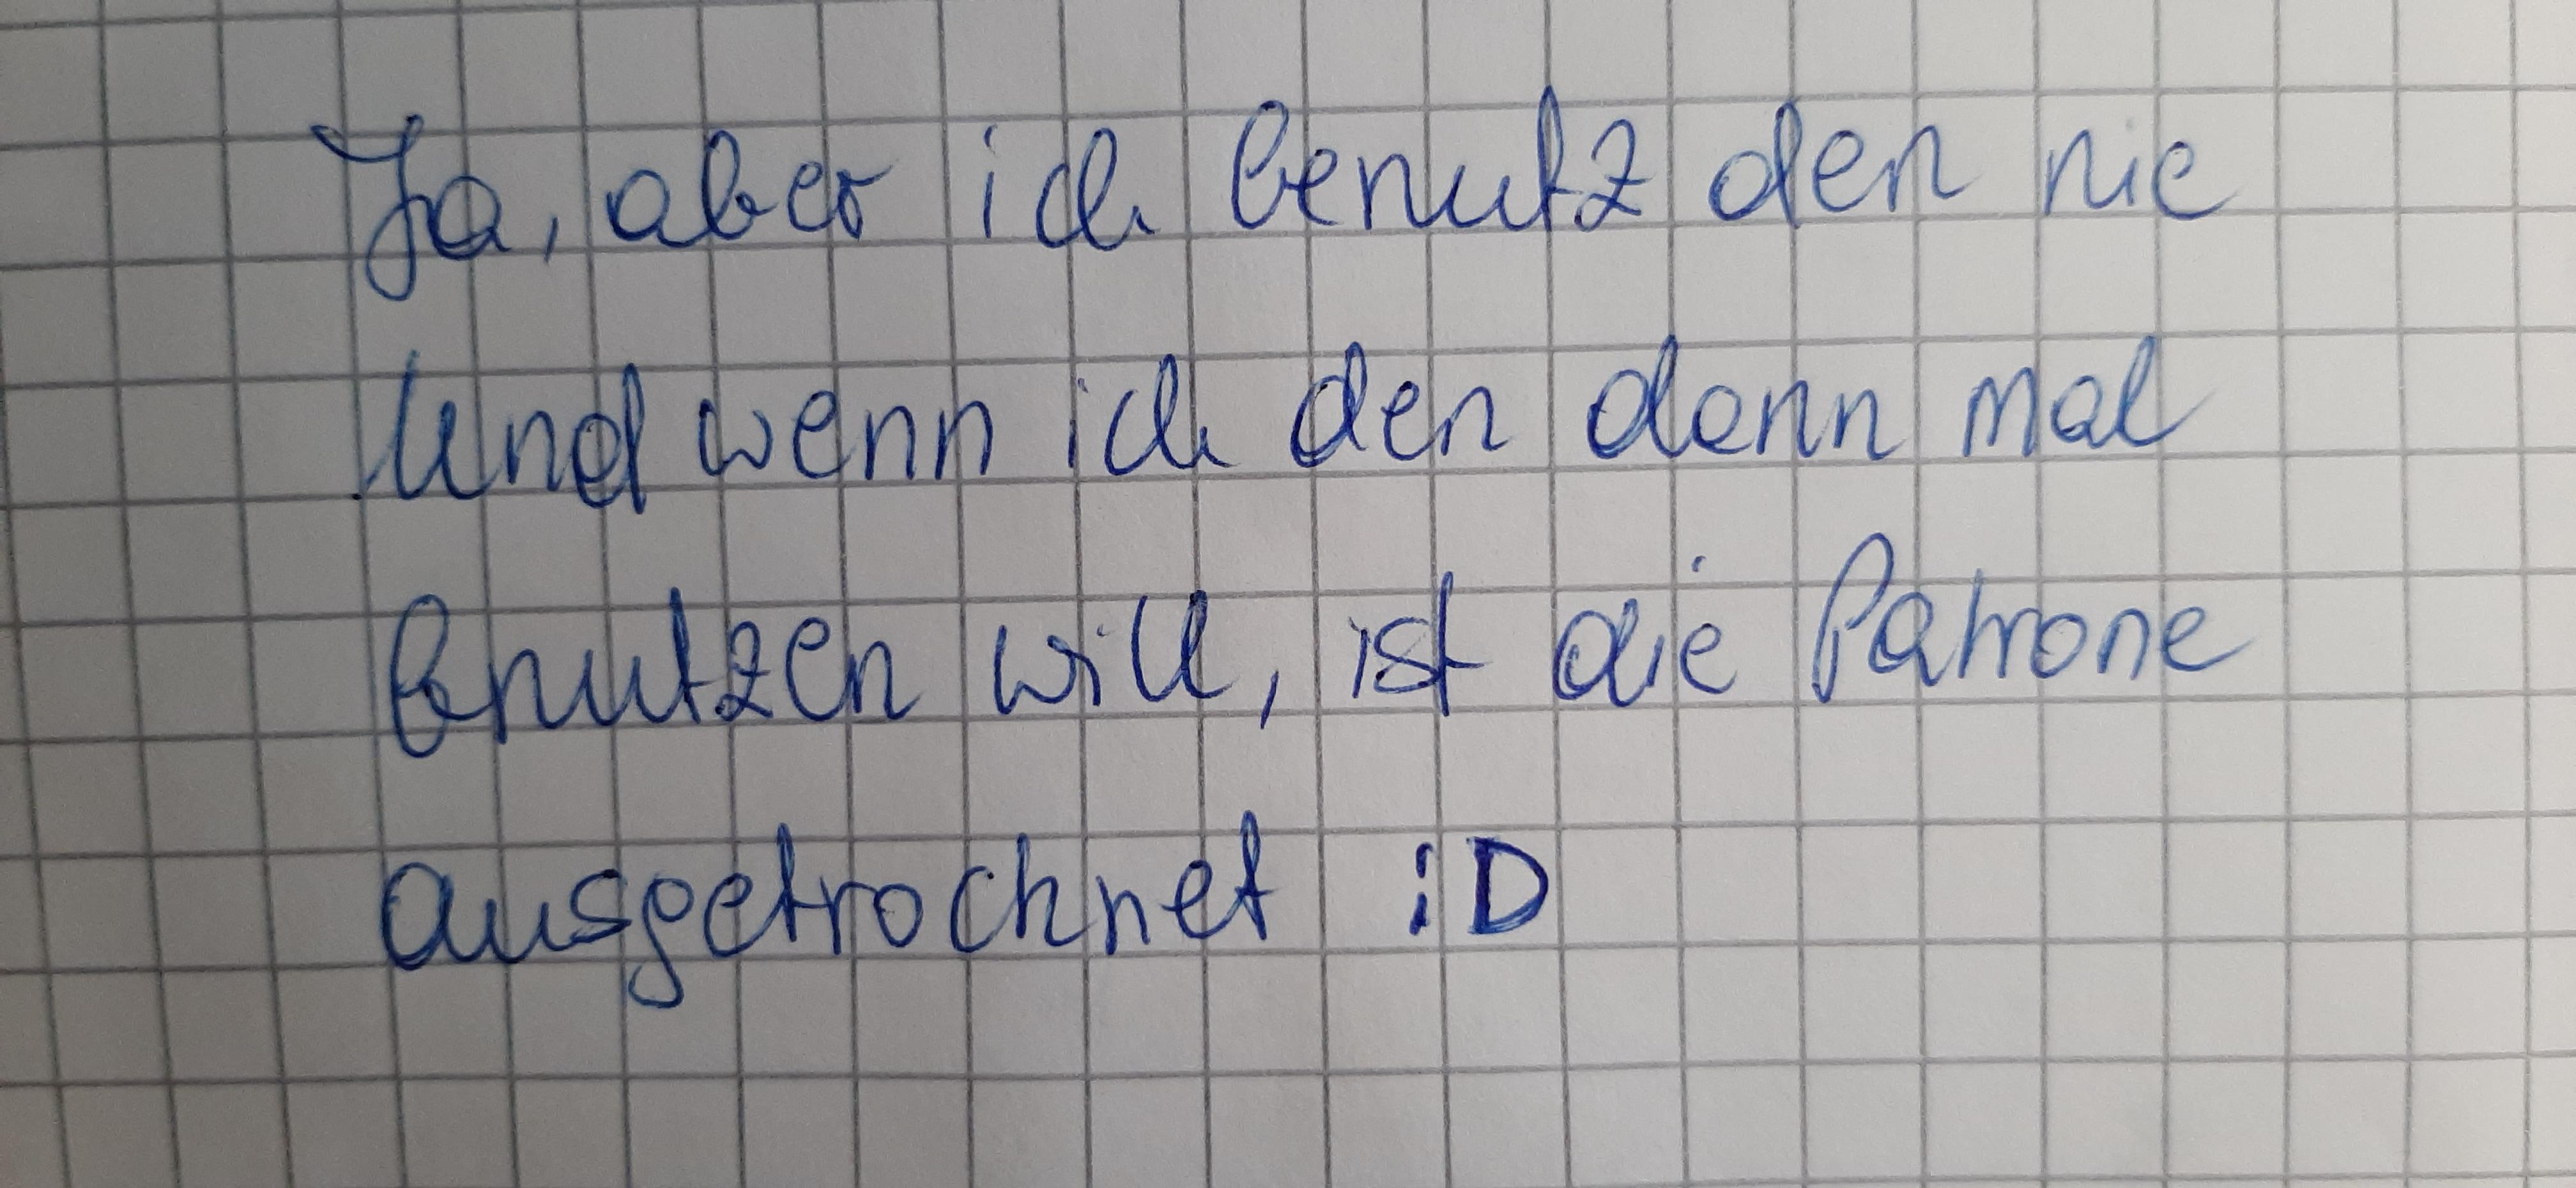 Ja, aber ich benutz den nie
Und wenn ich den dann mal
benutzen will, ist die Patrone
ausgetrocknet :D